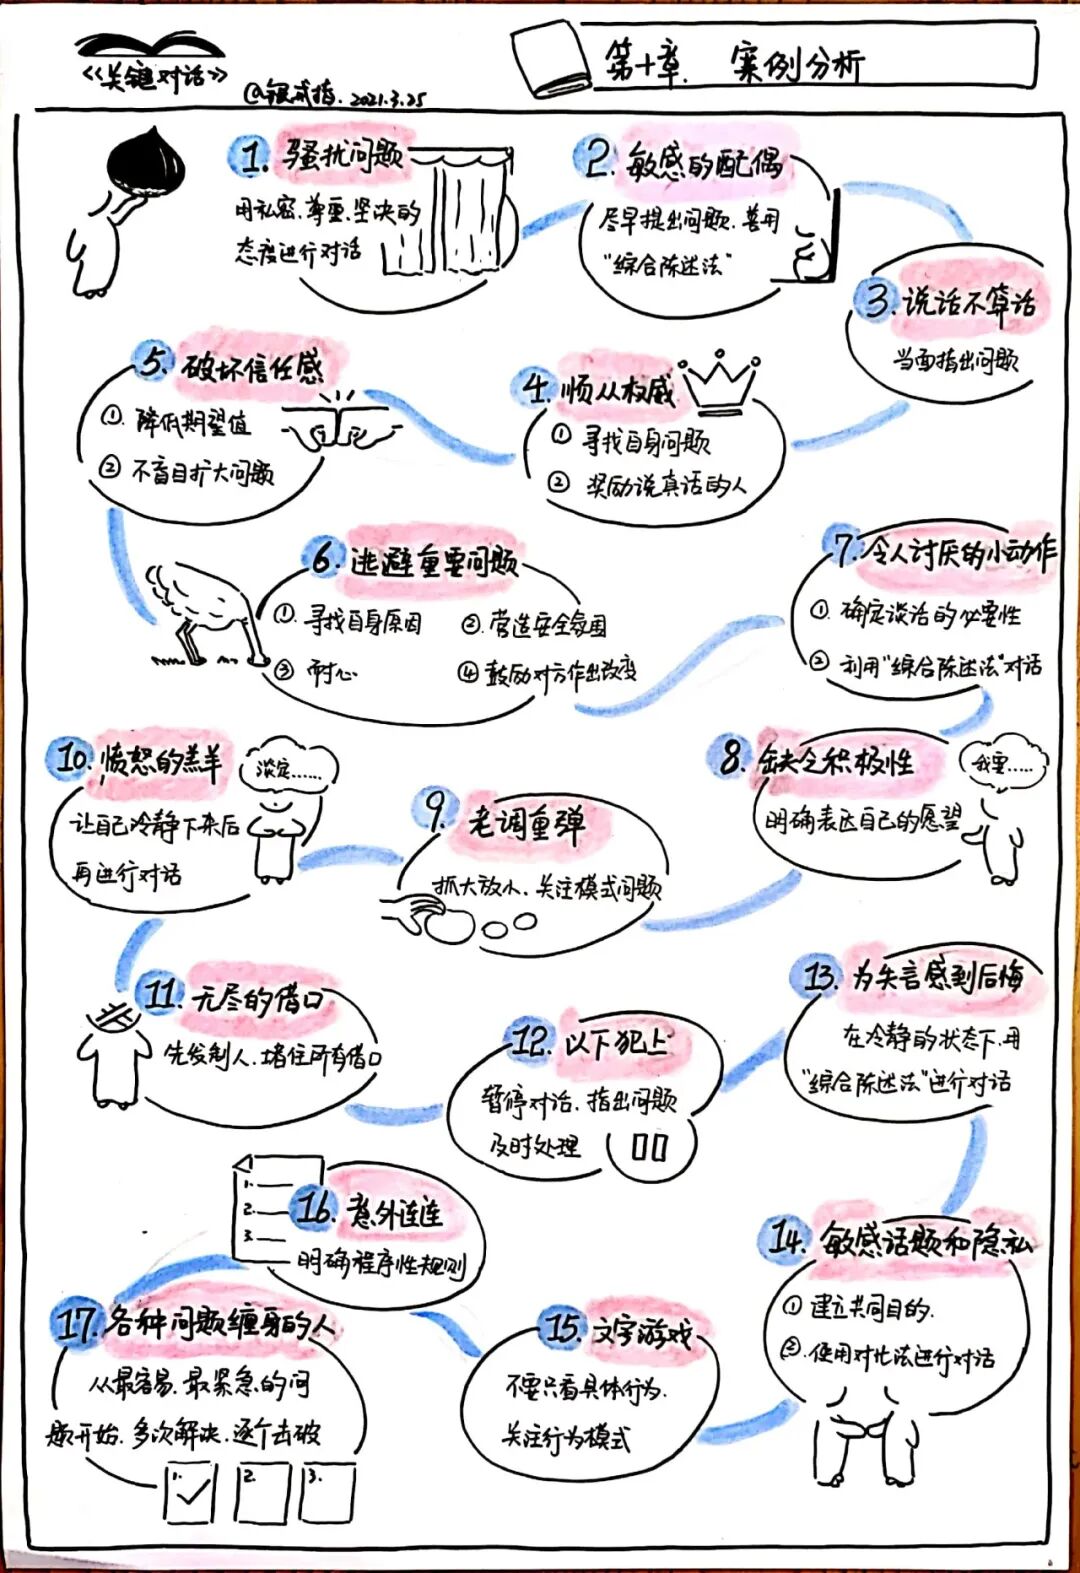 《关键对话》
@银戒指. 2021.3.25
第十章. 案例分析
1. 骚扰问题
用私密、尊重、坚决的
态度进行对话
2. 敏感的配偶
尽早提出问题、善用
“综合陈述法”
3. 说话不算话
当面指出问题
4. 顺从权威
① 寻找自身问题
② 奖励说真话的人
5. 破坏信任感
①. 降低期望值
② 不盲目扩大问题
6. 逃避重要问题
①. 寻找自身原因
②. 营造安全氛围
③ 耐心
④ 鼓励对方作出改变
7. 令人讨厌的小动作
① 确定谈话的必要性
② 利用“综合陈述法”对话
8. 缺乏积极性
明确表达自己的愿望
我要……
9. 老调重弹
抓大放小、关注模式问题
10. 愤怒的羔羊
让自己冷静下来后
再进行对话
淡定……
11. 无尽的借口
先发制人、堵住所有借口
12. 以下犯上
暂停对话、指出问题
及时处理
13. 为失言感到后悔
在冷静的状态下、用
“综合陈述法”进行对话
14. 敏感话题和隐私
① 建立共同目的.
②. 使用对比法进行对话
15. 文字游戏
不要只看具体行为、
关注行为模式
16. 意外连连
明确程序性规则
1.
2.
3.
17. 各种问题缠身的人
从最容易、最紧急的问
题开始、多次解决、逐个击破
1.
2.
3.